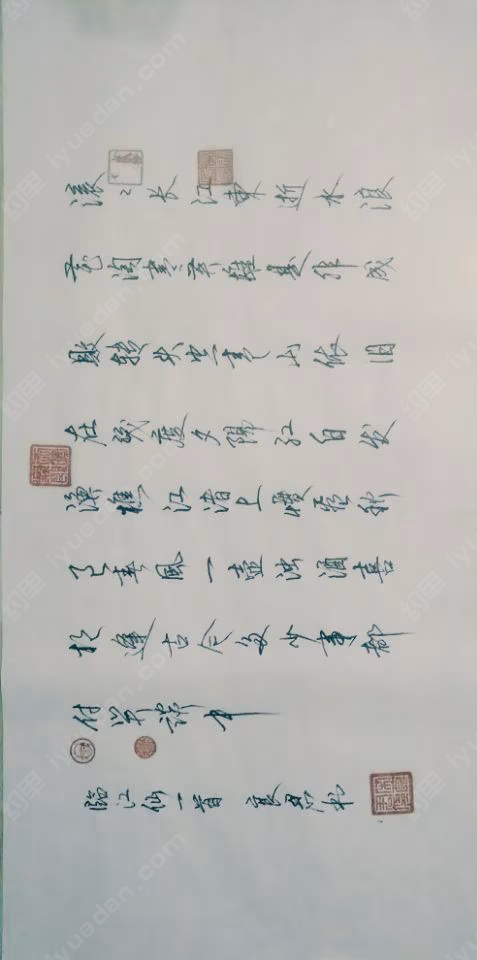 滚々长江東逝水浪
花淘尽英雄是非成
败转头空青山依旧
在幾度夕陽红白发
渔樵江渚上惯看秋
月春風一壶浊酒喜
相逢古今多少事都
付笑谈中
临江仙一首
iyuedan.com